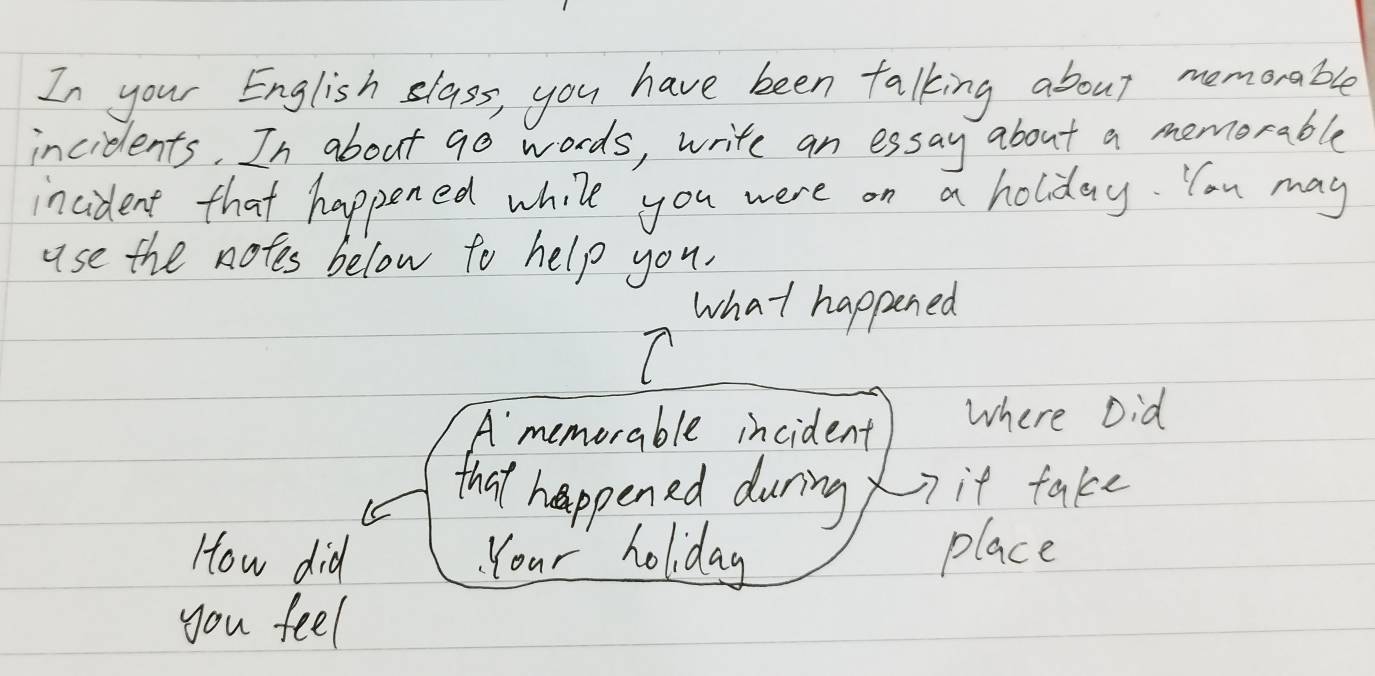 In your English slass, you have been talking about memorable
incidents. In about 90 words, write an essay about a memorable
incident that happened while you were on a holiday. You may
use the notes below to help you.
What happened
A memorable incident
that happened during
Your holiday
Where Did
it take
place
How did
you feel